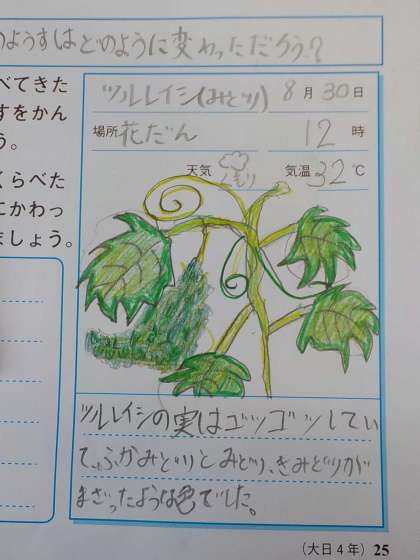 のようすはどのように変わっただろう?
べてきた
すをかん
う。
くらべた
にかわっ
ましょう。
ツルレイシ(みどり) 8月30日
場所 花だん 12時
天気 くもり 気温 32℃
ツルレイシの実はゴツゴツしてい
て、ふかみどりとみどり、きみどりが
まざったような色でした。
(大日4年) 25